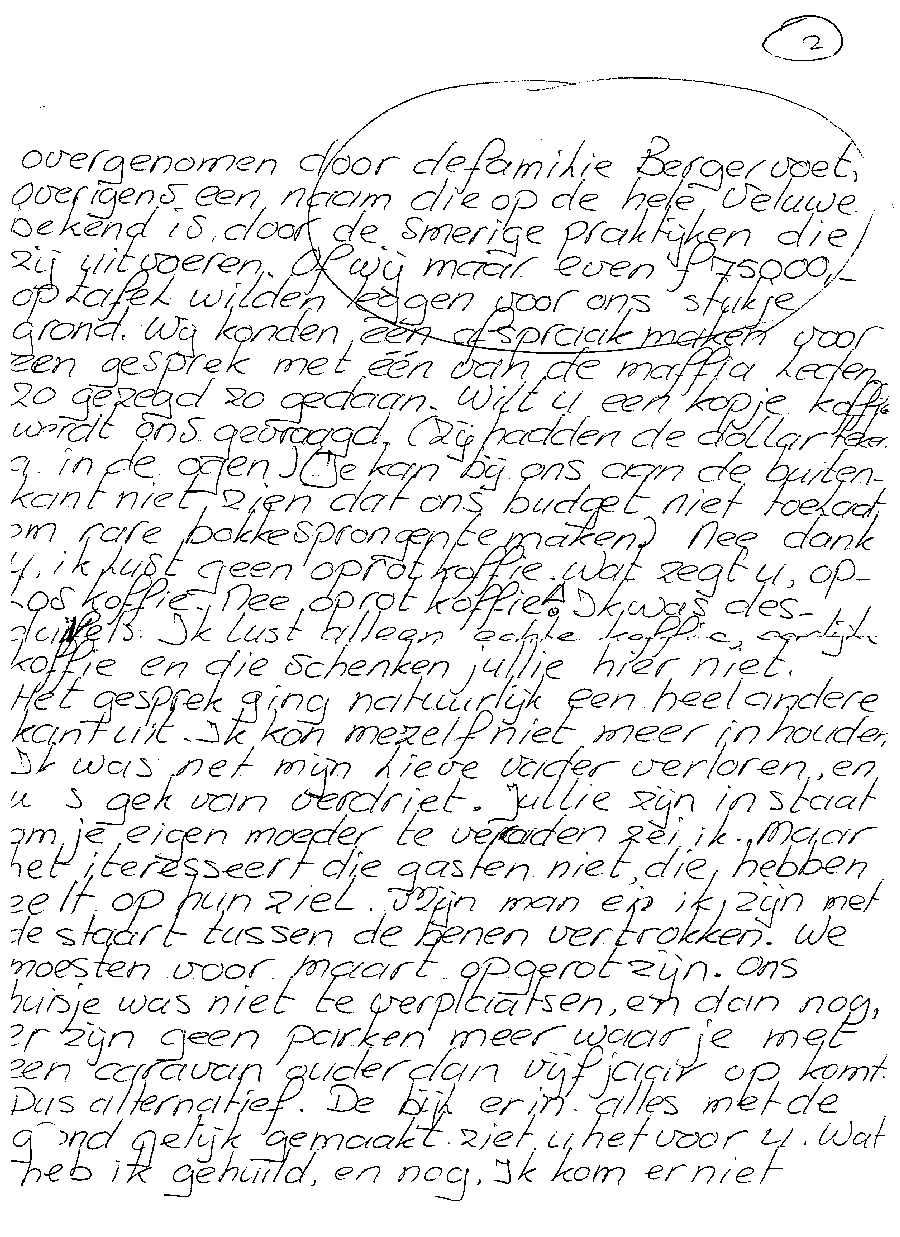 2
overgenomen door de familie Bergervoet,
overigens een naam die op de hele Veluwe
bekend is, door de smerige praktijken die
zij uitvoeren. Of wij maar even ƒ75000,-
op tafel wilden leggen voor ons stukje
grond. Wij konden één afspraak maken voor
een gesprek met één van de maffia leden,
zo gezegd zo gedaan. Wilt u een kopje koffie
werdt ons gevraagd. (Zij hadden de dollar
in de ogen) (Je kan bij ons aan de buiten-
kant niet zien dat ons budget niet toelaat
om rare bokkesprongen te maken) Nee dank
u, ik lust geen oprotkoffie. Wat zegt u, op-
los koffie. Nee oprot koffie! Ik was des-
duivels. Ik lust alleen echte koffie, eerlijke
koffie en die schenken jullie hier niet.
Het gesprek ging natuurlijk een heel andere
kant uit. Ik kon mezelf niet meer inhouden,
Ik was net mijn lieve vader verloren, en
was gek van verdriet. Jullie zijn in staat
om je eigen moeder te verraden zei ik. Maar
het iteresseert die gasten niet, die hebben
eelt op hun ziel. Mijn man en ik zijn met
de staart tussen de benen vertrokken. We
moesten voor maart opgerot zijn. Ons
huisje was niet te verplaatsen, en dan nog,
er zijn geen parken meer waar je met
een caravan ouder dan vijf jaar op komt.
Dus alternatief. De bijl erin. alles met de
grond gelijk gemaakt. ziet u het voor u. Wat
heb ik gehuild, en nog. Ik kom er niet